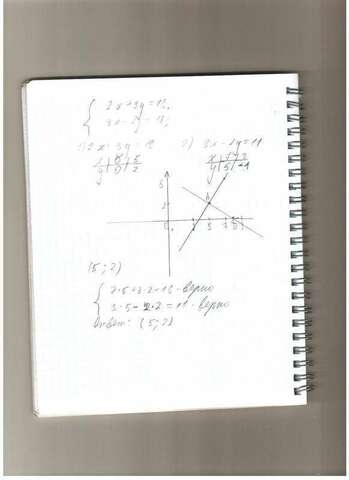 2x+3y=16,
3x-2y=11;
1) 2x+3y=16 2) 3x-2y=11
x | 8 | 5 x | 5 | 3
y | 0 | 2 y | 2 | -1
5
A
2
0 1 5 7 8
(5; 2)
2·5+3·2=16 - верно
3·5-2·2=11 - верно
Ответ: (5; 2)